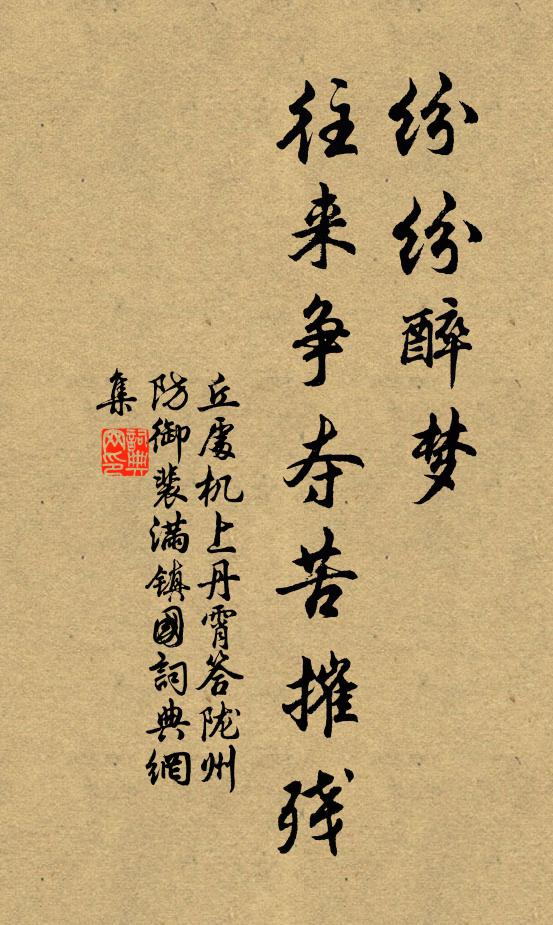 纷纷醉梦
往来争夺苦摧残
丘處机上丹霄答陇州
防御裴满镇國詞典網
集
詞典
网印